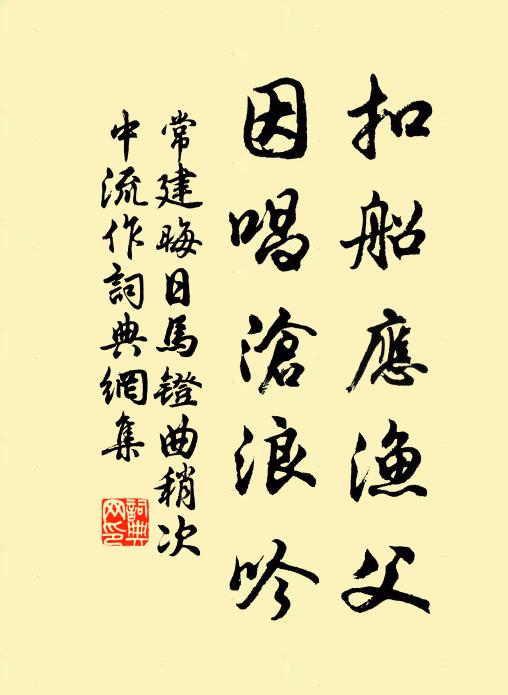 扣船應漁父
因唱滄浪吟
常建晦日馬鐙曲稍次
中流作詞典網集
詞典
网印